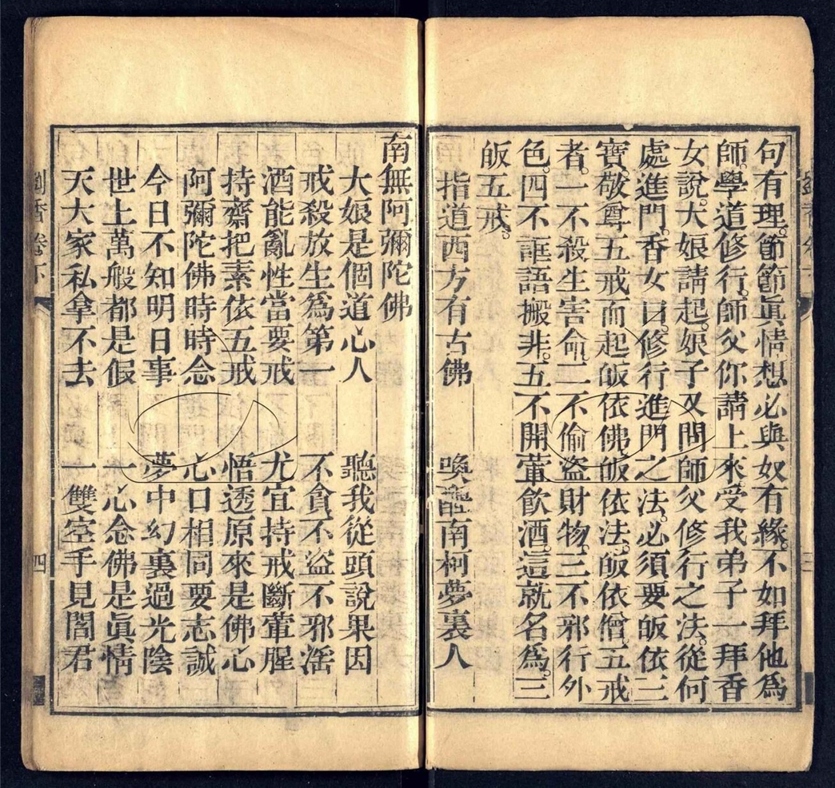 句有理。節節眞情想必與奴有緣。不如拜他爲
師。學道修行。師父你請上來受我弟子一拜香
女說。大娘請起。娘子又問師父修行之法。從何
處進門。香女曰。修行進門之法。必須要皈依三
寶敬尊五戒而起皈依佛皈依法。皈依僧五戒
者。一不殺生害命。二不偷盜財物。三不邪行外
色。四不誆語搬非。五不開葷飲酒。這就名爲。三
皈五戒。
指道西方有古佛 喚醒南柯夢裏人
南無阿彌陀佛
大娘是個道心人 聽我從頭說果因
戒殺放生爲第一 不貪不盜不邪淫
酒能亂性當要戒 尤宜持戒斷葷腥
持齋把素依五戒 悟透原來是佛心
阿彌陀佛時時念 心口相同要志誠
今日不知明日事 夢中幻裏過光陰
世上萬般都是假 一心念佛是眞情
天大家私拿不去 一雙空手見閻君
劉香卷下
四